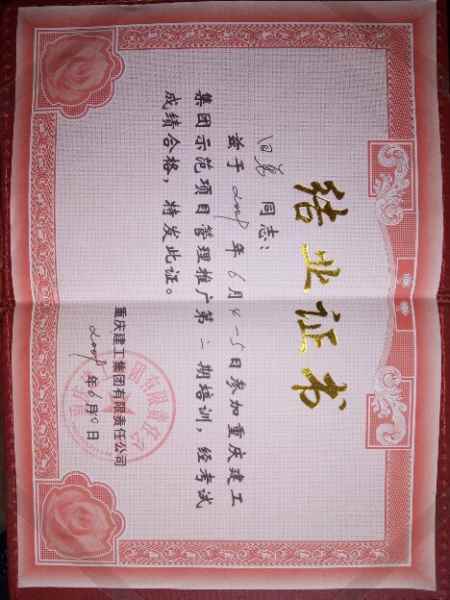 结业证书
田勇 同志：
兹于 2009 年 6 月 4-5 日参加重庆建工
集团示范项目管理推广第二期培训，经考试
成绩合格，特发此证。
重庆建工集团有限责任公司
2009 年 6 月 10 日